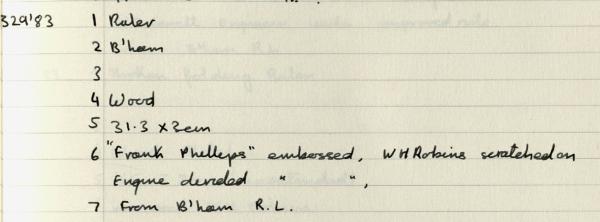 329'83 1 Ruler
2 B'ham
3
4 Wood
5 31.3 x 3cm
6 "Frank Phelleps" embossed, WH Robins scratched on
Engine devided " ",
7 From B'ham R.L.